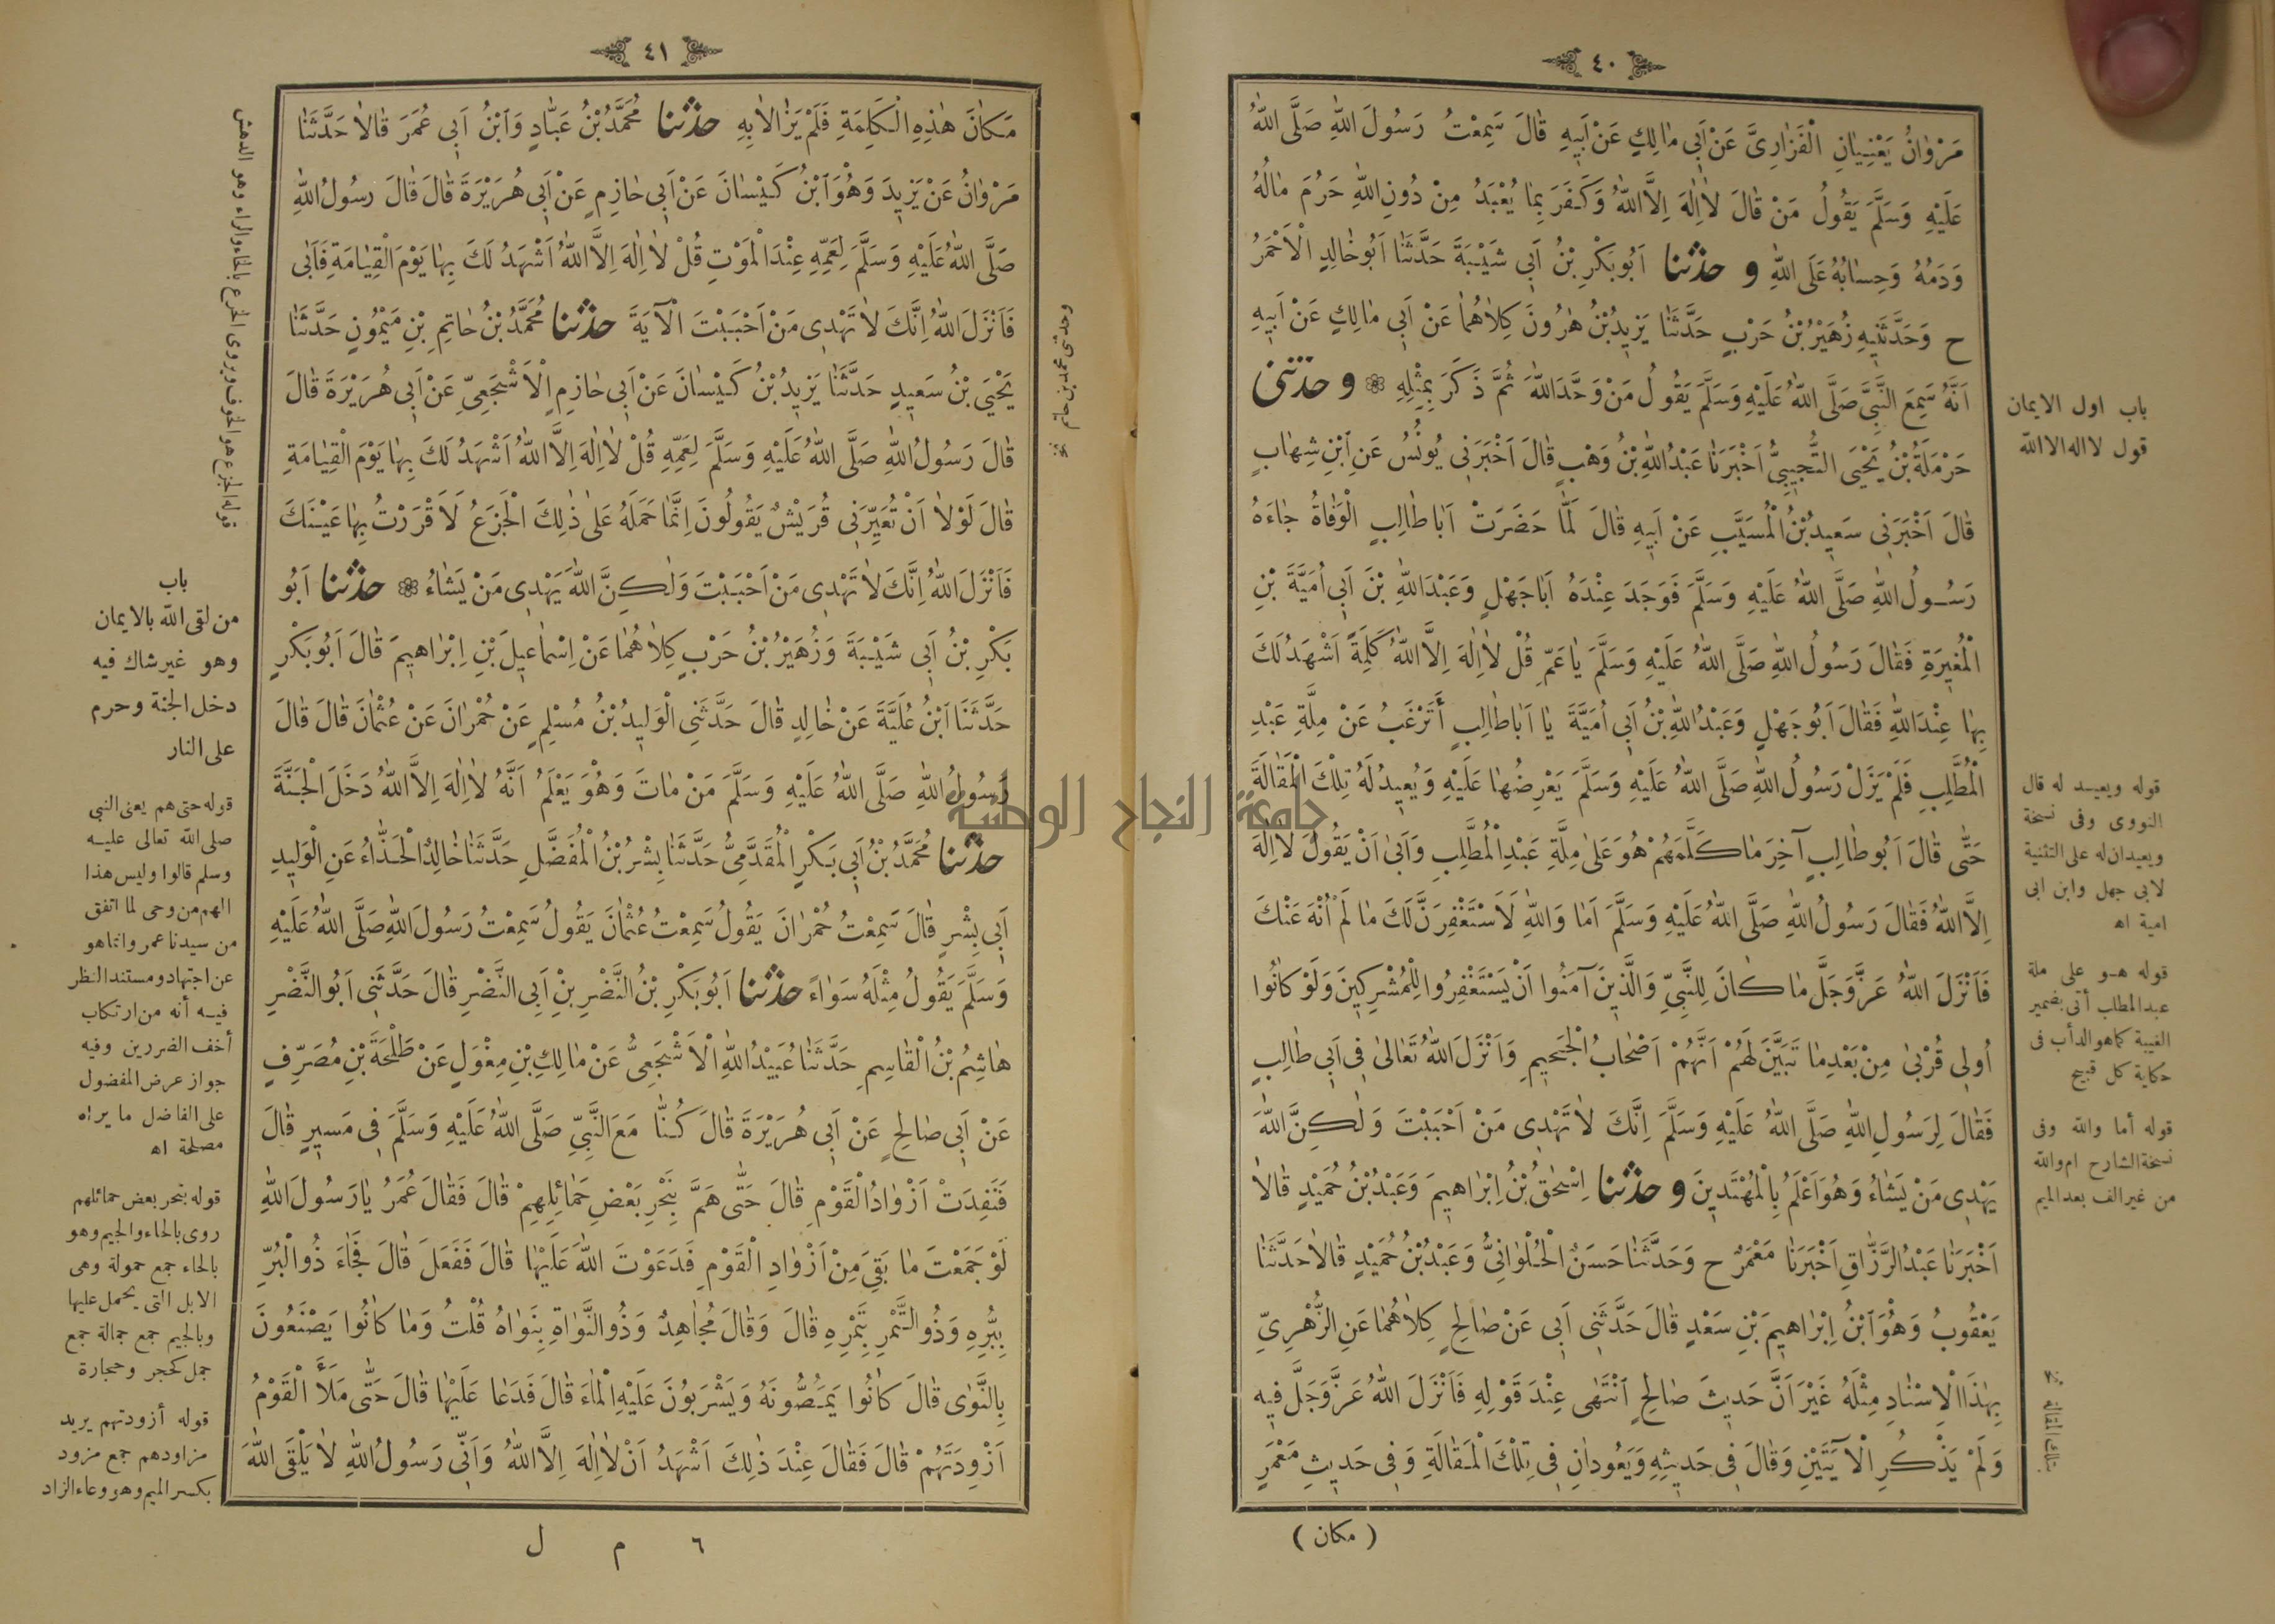 ٤٠
مَرْوَانُ يَعْنِيَانِ الْفَزَارِىَّ عَنْ اَبِى مَالِكٍ عَنْ اَبِيهِ قَالَ سَمِعْتُ رَسُولَ اللّٰهِ صَلَّى اللّٰهُ
عَلَيْهِ وَسَلَّمَ يَقُولُ مَنْ قَالَ لَا اِلٰهَ اِلَّا اللّٰهُ وَكَفَرَ بِمَا يُعْبَدُ مِنْ دُونِ اللّٰهِ حَرُمَ مَالُهُ
وَدَمُهُ وَحِسَابُهُ عَلَى اللّٰهِ و حدثنا اَبُو بَكْرِ بْنُ اَبِى شَيْبَةَ حَدَّثَنَا اَبُو خَالِدٍ الْاَحْمَرُ
ح وَحَدَّثَنِيهِ زُهَيْرُ بْنُ حَرْبٍ حَدَّثَنَا يَزِيدُ بْنُ هٰرُونَ كِلَاهُمَا عَنْ اَبِى مَالِكٍ عَنْ اَبِيهِ
اَنَّهُ سَمِعَ النَّبِىَّ صَلَّى اللّٰهُ عَلَيْهِ وَسَلَّمَ يَقُولُ مَنْ وَحَّدَ اللّٰهَ ثُمَّ ذَكَرَ بِمِثْلِهِ ❀ و حدثنى
حَرْمَلَةُ بْنُ يَحْيَى التُّجِيبِىُّ اَخْبَرَنَا عَبْدُ اللّٰهِ بْنُ وَهْبٍ قَالَ اَخْبَرَنِى يُونُسُ عَنِ ابْنِ شِهَابٍ
قَالَ اَخْبَرَنِى سَعِيدُ بْنُ الْمُسَيَّبِ عَنْ اَبِيهِ قَالَ لَمَّا حَضَرَتْ اَبَا طَالِبٍ الْوَفَاةُ جَاءَهُ
رَسُولُ اللّٰهِ صَلَّى اللّٰهُ عَلَيْهِ وَسَلَّمَ فَوَجَدَ عِنْدَهُ اَبَا جَهْلٍ وَعَبْدَ اللّٰهِ بْنَ اَبِى اُمَيَّةَ بْنِ
الْمُغِيرَةِ فَقَالَ رَسُولُ اللّٰهِ صَلَّى اللّٰهُ عَلَيْهِ وَسَلَّمَ يَا عَمِّ قُلْ لَا اِلٰهَ اِلَّا اللّٰهُ كَلِمَةً اَشْهَدُ لَكَ
بِهَا عِنْدَ اللّٰهِ فَقَالَ اَبُو جَهْلٍ وَعَبْدُ اللّٰهِ بْنُ اَبِى اُمَيَّةَ يَا اَبَا طَالِبٍ أَتَرْغَبُ عَنْ مِلَّةِ عَبْدِ
الْمُطَّلِبِ فَلَمْ يَزَلْ رَسُولُ اللّٰهِ صَلَّى اللّٰهُ عَلَيْهِ وَسَلَّمَ يَعْرِضُهَا عَلَيْهِ وَيُعِيدُ لَهُ تِلْكَ الْمَقَالَةَ
حَتَّى قَالَ اَبُو طَالِبٍ آخِرَ مَا كَلَّمَهُمْ هُوَ عَلَى مِلَّةِ عَبْدِ الْمُطَّلِبِ وَاَبَى اَنْ يَقُولَ لَا اِلٰهَ
اِلَّا اللّٰهُ فَقَالَ رَسُولُ اللّٰهِ صَلَّى اللّٰهُ عَلَيْهِ وَسَلَّمَ اَمَا وَاللّٰهِ لَاَسْتَغْفِرَنَّ لَكَ مَا لَمْ اُنْهَ عَنْكَ
فَاَنْزَلَ اللّٰهُ عَزَّ وَجَلَّ مَا كَانَ لِلنَّبِىِّ وَالَّذِينَ آمَنُوا اَنْ يَسْتَغْفِرُوا لِلْمُشْرِكِينَ وَلَوْ كَانُوا
اُولِى قُرْبٰى مِنْ بَعْدِ مَا تَبَيَّنَ لَهُمْ اَنَّهُمْ اَصْحَابُ الْجَحِيمِ وَاَنْزَلَ اللّٰهُ تَعَالَى فِى اَبِى طَالِبٍ
فَقَالَ لِرَسُولِ اللّٰهِ صَلَّى اللّٰهُ عَلَيْهِ وَسَلَّمَ اِنَّكَ لَا تَهْدِى مَنْ اَحْبَبْتَ وَلٰكِنَّ اللّٰهَ
يَهْدِى مَنْ يَشَاءُ وَهُوَ اَعْلَمُ بِالْمُهْتَدِينَ و حدثنا اِسْحٰقُ بْنُ اِبْرَاهِيمَ وَعَبْدُ بْنُ حُمَيْدٍ قَالَا
اَخْبَرَنَا عَبْدُ الرَّزَّاقِ اَخْبَرَنَا مَعْمَرٌ ح وَحَدَّثَنَا حَسَنٌ الْحُلْوَانِىُّ وَعَبْدُ بْنُ حُمَيْدٍ قَالَا حَدَّثَنَا
يَعْقُوبُ وَهُوَ ابْنُ اِبْرَاهِيمَ بْنِ سَعْدٍ قَالَ حَدَّثَنِى اَبِى عَنْ صَالِحٍ كِلَاهُمَا عَنِ الزُّهْرِىِّ
بِهٰذَا الْاِسْنَادِ مِثْلَهُ غَيْرَ اَنَّ حَدِيثَ صَالِحٍ اَنْتَهٰى عِنْدَ قَوْلِهِ فَاَنْزَلَ اللّٰهُ عَزَّ وَجَلَّ فِيهِ
وَلَمْ يَذْكُرِ الْآيَتَيْنِ وَقَالَ فِى حَدِيثِهِ وَيَعُودَانِ فِى تِلْكَ الْمَقَالَةِ وَفِى حَدِيثِ مَعْمَرٍ
( مكان )
باب اول الايمان
قول لا اله الا الله
قوله ويعيد له قال
النووى وفى نسخة
ويعيدان له على التثنية
لابى جهل وابن ابى
امية اه
قوله هو على ملة
عبدالمطلب أتى بضمير
الغيبة كما هو الدأب فى
حكاية كل قبيح
قوله أما والله وفى
نسخة الشارح ام والله
من غير الف بعد الميم
بتلك المقالة نخ
٤١
مَكَانَ هٰذِهِ الْكَلِمَةِ فَلَمْ يَزَالَا بِهِ حدثنا مُحَمَّدُ بْنُ عَبَّادٍ وَابْنُ اَبِى عُمَرَ قَالَا حَدَّثَنَا
مَرْوَانُ عَنْ يَزِيدَ وَهُوَ ابْنُ كَيْسَانَ عَنْ اَبِى حَازِمٍ عَنْ اَبِى هُرَيْرَةَ قَالَ قَالَ رَسُولُ اللّٰهِ
صَلَّى اللّٰهُ عَلَيْهِ وَسَلَّمَ لِعَمِّهِ عِنْدَ الْمَوْتِ قُلْ لَا اِلٰهَ اِلَّا اللّٰهُ اَشْهَدُ لَكَ بِهَا يَوْمَ الْقِيَامَةِ فَاَبٰى
فَاَنْزَلَ اللّٰهُ اِنَّكَ لَا تَهْدِى مَنْ اَحْبَبْتَ الْآيَةَ حدثنا مُحَمَّدُ بْنُ حَاتِمِ بْنِ مَيْمُونٍ حَدَّثَنَا
يَحْيَى بْنُ سَعِيدٍ حَدَّثَنَا يَزِيدُ بْنُ كَيْسَانَ عَنْ اَبِى حَازِمٍ الْاَشْجَعِىِّ عَنْ اَبِى هُرَيْرَةَ قَالَ
قَالَ رَسُولُ اللّٰهِ صَلَّى اللّٰهُ عَلَيْهِ وَسَلَّمَ لِعَمِّهِ قُلْ لَا اِلٰهَ اِلَّا اللّٰهُ اَشْهَدُ لَكَ بِهَا يَوْمَ الْقِيَامَةِ
قَالَ لَوْلَا اَنْ تُعَيِّرَنِى قُرَيْشٌ يَقُولُونَ اِنَّمَا حَمَلَهُ عَلَى ذٰلِكَ الْجَزَعُ لَاَقْرَرْتُ بِهَا عَيْنَكَ
فَاَنْزَلَ اللّٰهُ اِنَّكَ لَا تَهْدِى مَنْ اَحْبَبْتَ وَلٰكِنَّ اللّٰهَ يَهْدِى مَنْ يَشَاءُ ❀ حدثنا اَبُو
بَكْرِ بْنُ اَبِى شَيْبَةَ وَزُهَيْرُ بْنُ حَرْبٍ كِلَاهُمَا عَنْ اِسْمَاعِيلَ بْنِ اِبْرَاهِيمَ قَالَ اَبُو بَكْرٍ
حَدَّثَنَا ابْنُ عُلَيَّةَ عَنْ خَالِدٍ قَالَ حَدَّثَنِى الْوَلِيدُ بْنُ مُسْلِمٍ عَنْ حُمْرَانَ عَنْ عُثْمَانَ قَالَ قَالَ
رَسُولُ اللّٰهِ صَلَّى اللّٰهُ عَلَيْهِ وَسَلَّمَ مَنْ مَاتَ وَهُوَ يَعْلَمُ اَنَّهُ لَا اِلٰهَ اِلَّا اللّٰهُ دَخَلَ الْجَنَّةَ
حدثنا مُحَمَّدُ بْنُ اَبِى بَكْرٍ الْمُقَدَّمِىُّ حَدَّثَنَا بِشْرُ بْنُ الْمُفَضَّلِ حَدَّثَنَا خَالِدٌ الْحَذَّاءُ عَنِ الْوَلِيدِ
اَبِى بِشْرٍ قَالَ سَمِعْتُ حُمْرَانَ يَقُولُ سَمِعْتُ عُثْمَانَ يَقُولُ سَمِعْتُ رَسُولَ اللّٰهِ صَلَّى اللّٰهُ عَلَيْهِ
وَسَلَّمَ يَقُولُ مِثْلَهُ سَوَاءً حدثنا اَبُو بَكْرِ بْنُ النَّضْرِ بْنِ اَبِى النَّضْرِ قَالَ حَدَّثَنِى اَبُو النَّضْرِ
هَاشِمُ بْنُ الْقَاسِمِ حَدَّثَنَا عُبَيْدُ اللّٰهِ الْاَشْجَعِىُّ عَنْ مَالِكِ بْنِ مِغْوَلٍ عَنْ طَلْحَةَ بْنِ مُصَرِّفٍ
عَنْ اَبِى صَالِحٍ عَنْ اَبِى هُرَيْرَةَ قَالَ كُنَّا مَعَ النَّبِىِّ صَلَّى اللّٰهُ عَلَيْهِ وَسَلَّمَ فِى مَسِيرٍ قَالَ
فَنَفِدَتْ اَزْوَادُ الْقَوْمِ قَالَ حَتَّى هَمَّ بِنَحْرِ بَعْضِ حَمَائِلِهِمْ قَالَ فَقَالَ عُمَرُ يَا رَسُولَ اللّٰهِ
لَوْ جَمَعْتَ مَا بَقِىَ مِنْ اَزْوَادِ الْقَوْمِ فَدَعَوْتَ اللّٰهَ عَلَيْهَا قَالَ فَفَعَلَ قَالَ فَجَاءَ ذُو الْبُرِّ
بِبُرِّهِ وَذُو التَّمْرِ بِتَمْرِهِ قَالَ وَقَالَ مُجَاهِدٌ وَذُو النَّوَاةِ بِنَوَاهُ قُلْتُ وَمَا كَانُوا يَصْنَعُونَ
بِالنَّوٰى قَالَ كَانُوا يَمَصُّونَهُ وَيَشْرَبُونَ عَلَيْهِ الْمَاءَ قَالَ فَدَعَا عَلَيْهَا قَالَ حَتَّى مَلَأَ الْقَوْمُ
اَزْوِدَتَهُمْ قَالَ فَقَالَ عِنْدَ ذٰلِكَ اَشْهَدُ اَنْ لَا اِلٰهَ اِلَّا اللّٰهُ وَاَنِّى رَسُولُ اللّٰهِ لَا يَلْقَى اللّٰهَ
٦ م ل
وحدثنى محمد بن حاتم نخ
قوله الجزع هو الخوف ويروى الخرع بالخاء والراء وهو الدهش
باب
من لقى الله بالايمان
وهو غير شاك فيه
دخل الجنة وحرم
على النار
قوله حتى هم يعنى النبى
صلى الله تعالى عليه
وسلم قالوا وليس هذا
الهم من وحى لما اتفق
من سيدنا عمر وانما هو
عن اجتهاد ومستند النظر
فيه أنه من ارتكاب
أخف الضررين وفيه
جواز عرض المفضول
على الفاضل ما يراه
مصلحة اه
قوله بنحر بعض حمائلهم
روى بالحاء والجيم وهو
بالحاء جمع حمولة وهى
الابل التى يحمل عليها
وبالجيم جمع جمالة جمع
جمل كحجر وحجارة
قوله أزودتهم يريد
مزاودهم جمع مزود
بكسر الميم وهو وعاء الزاد
جامعة النجاح الوطنية